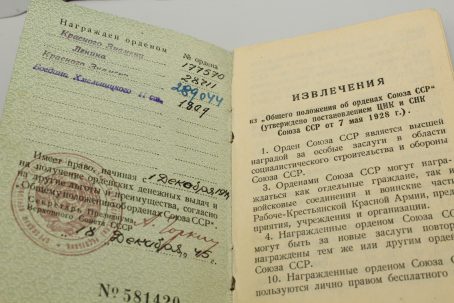 Награжден орденом
№ ордена
Красного Знамени 177570
Ленина 28711
Красного Знамени
Богдана Хмельницкого II ст. 1809
Имеет право, начиная с 1 декабря
на получение орденских денежных выдач и
на другие льготы и преимущества, согласно
„Общему положению об орденах Союза ССР“
Секретарь Президиума
Верховного Совета СССР А. Горкин
18 декабря 45 г.
№ 581420
ИЗВЛЕЧЕНИЯ
из „Общего положения об орденах Союза ССР“
(утверждено постановлением ЦИК и СНК
Союза ССР от 7 мая 1928 г.).
1. Орден Союза ССР является высшей
наградой за особые заслуги в области
социалистического строительства и обороны
Союза ССР.
3. Орденами Союза ССР могут награ-
ждаться как отдельные граждане, так и
войсковые соединения и воинские части
Рабоче-Крестьянской Красной Армии, пред-
приятия, учреждения и организации.
4. Награжденные орденом Союза ССР
могут быть за новые заслуги повторно
награждены тем же или другим орденом
Союза ССР.
10. Награжденные орденом Союза ССР
пользуются лично правом бесплатного